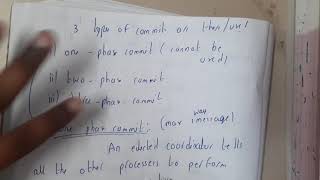 3 types of commit are there/used
one-phase commit (cannot be used)
ii) two-phase commit
iii) three-phase commit
one phase commit: (max 1message)
way
An elected coordinator tells
all the other processes to perform